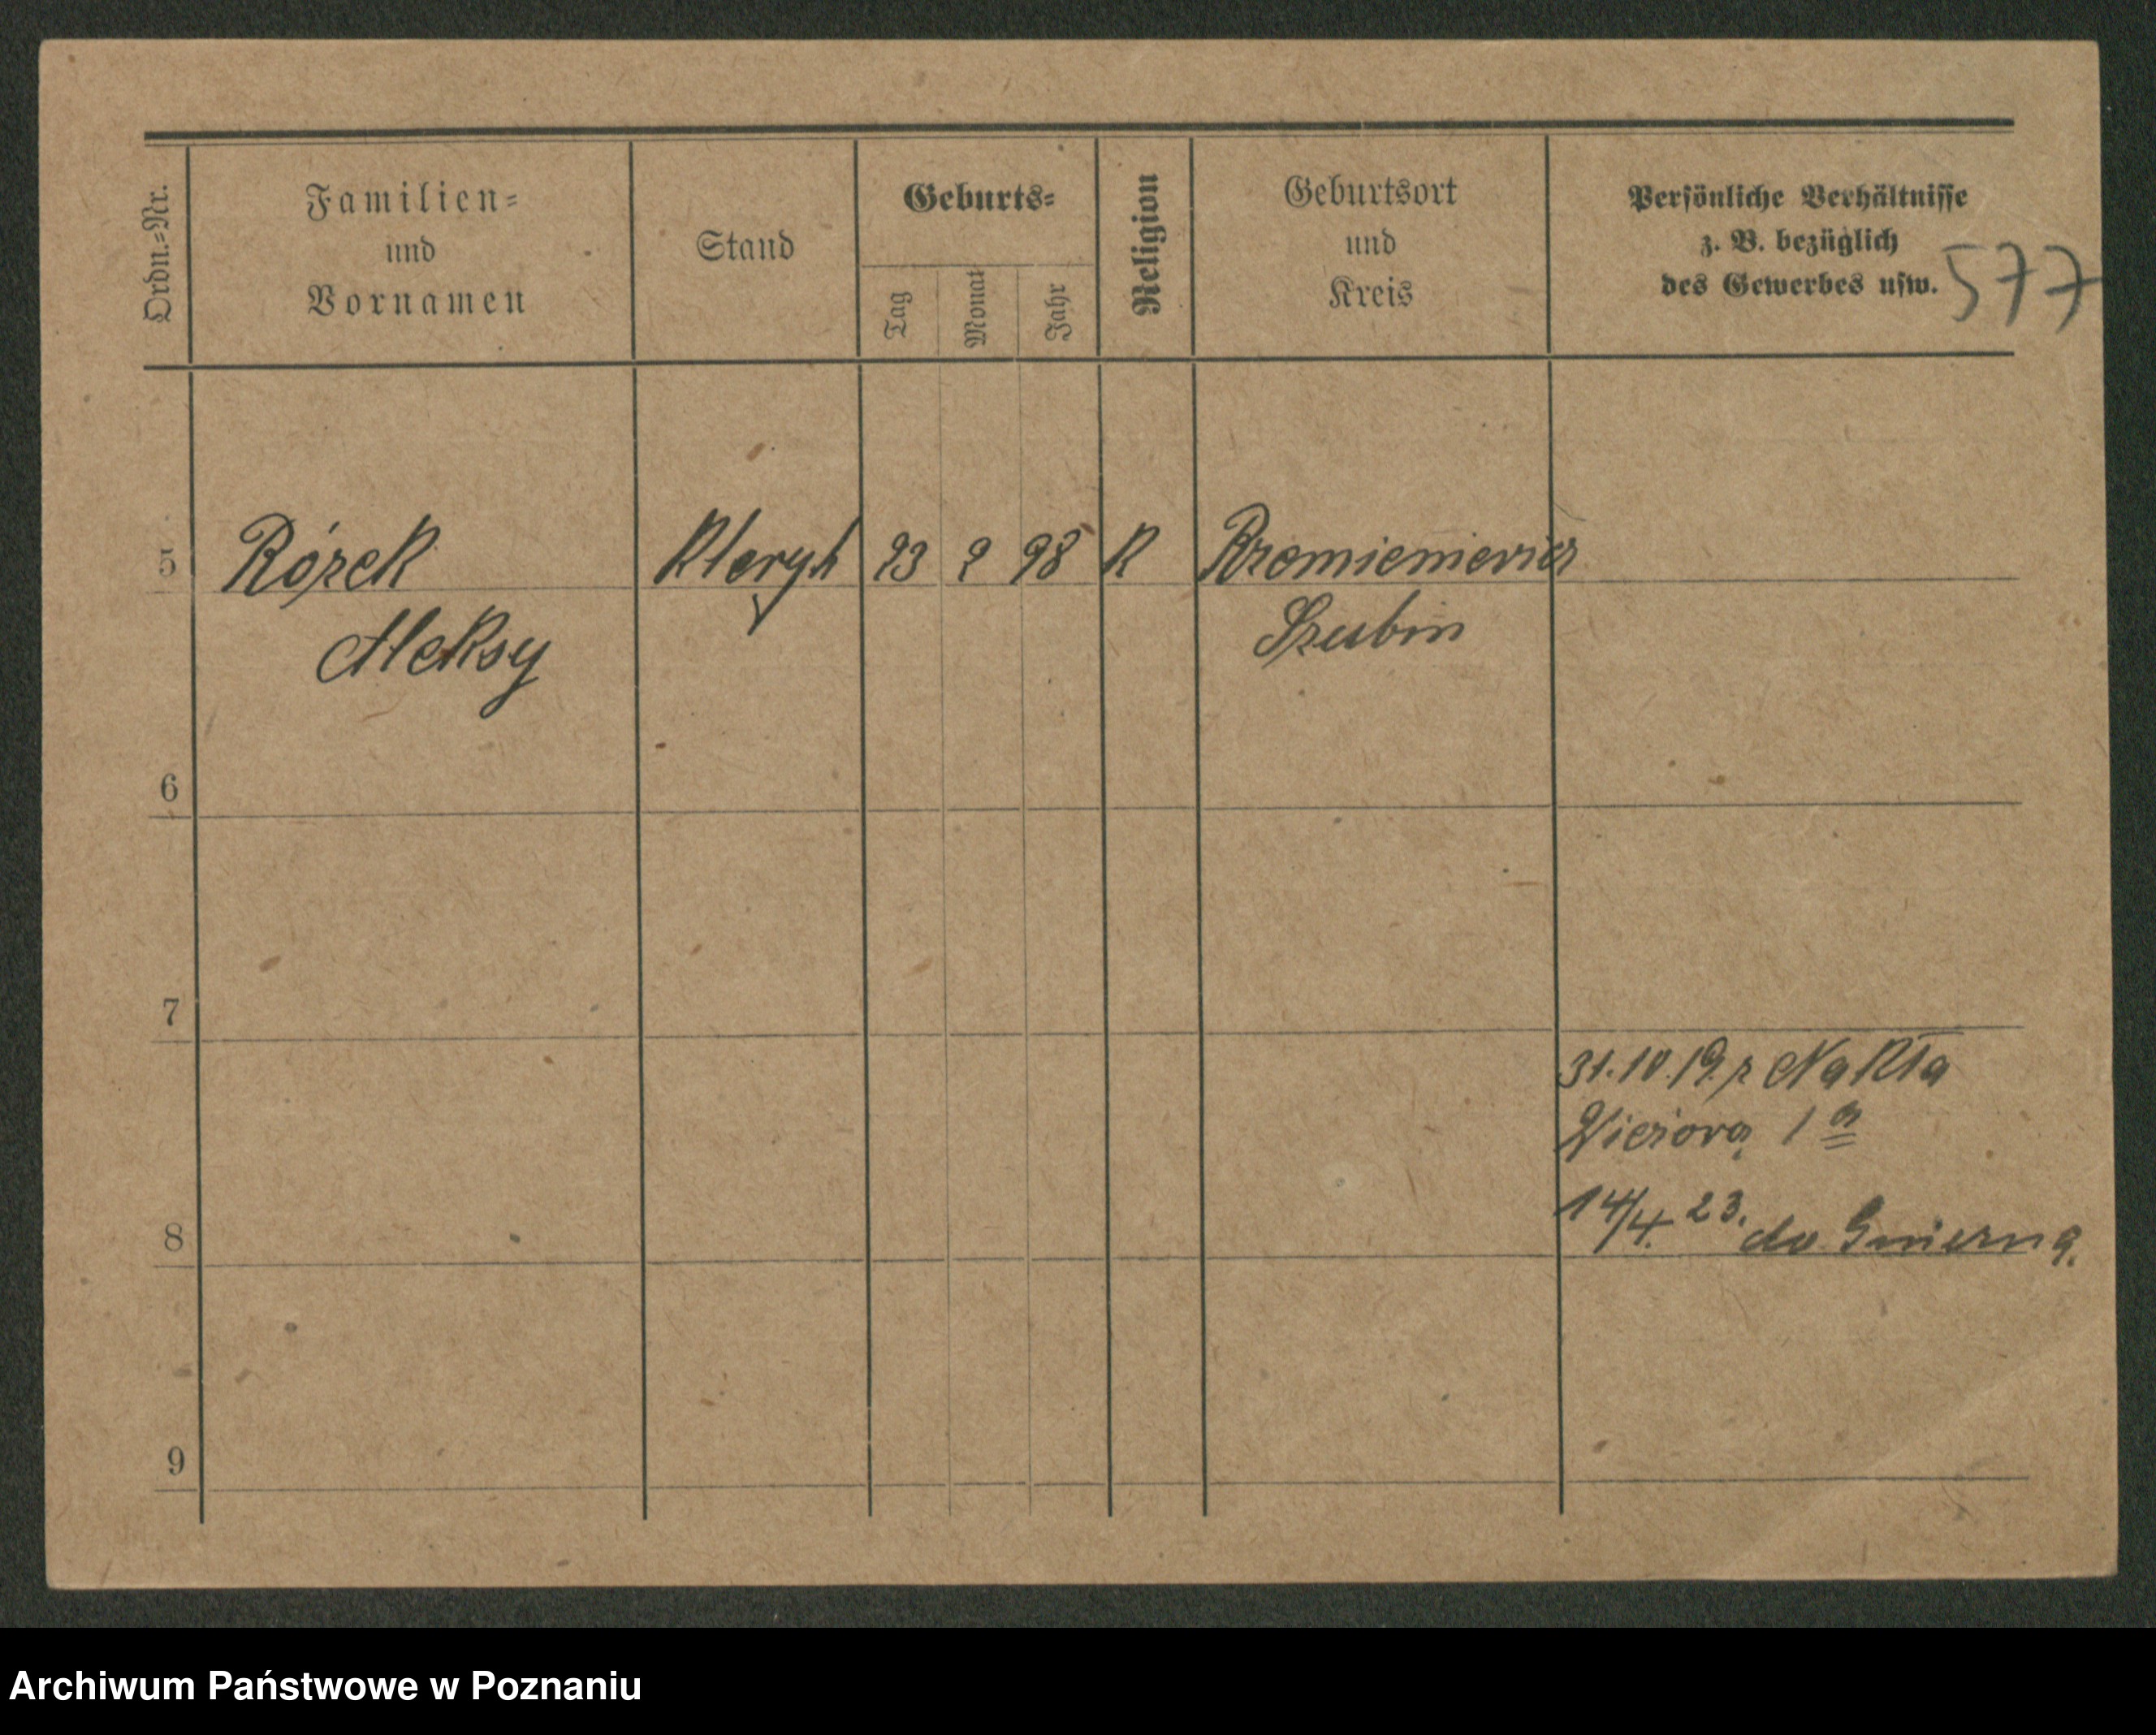 Ordn.=Nr.
Familien=
und
Vornamen
Stand
Geburts=
Tag
Monat
Jahr
Religion
Geburtsort
und
Kreis
Persönliche Verhältnisse
z. B. bezüglich
des Gewerbes usw.
577
5
Rózek
Kleryk
23
2
98
K
Aleksy
Szubin
6
7
31.10.19. z Nakła
1 a
14/4. 23. do
8
9
Archiwum Państwowe w Poznaniu